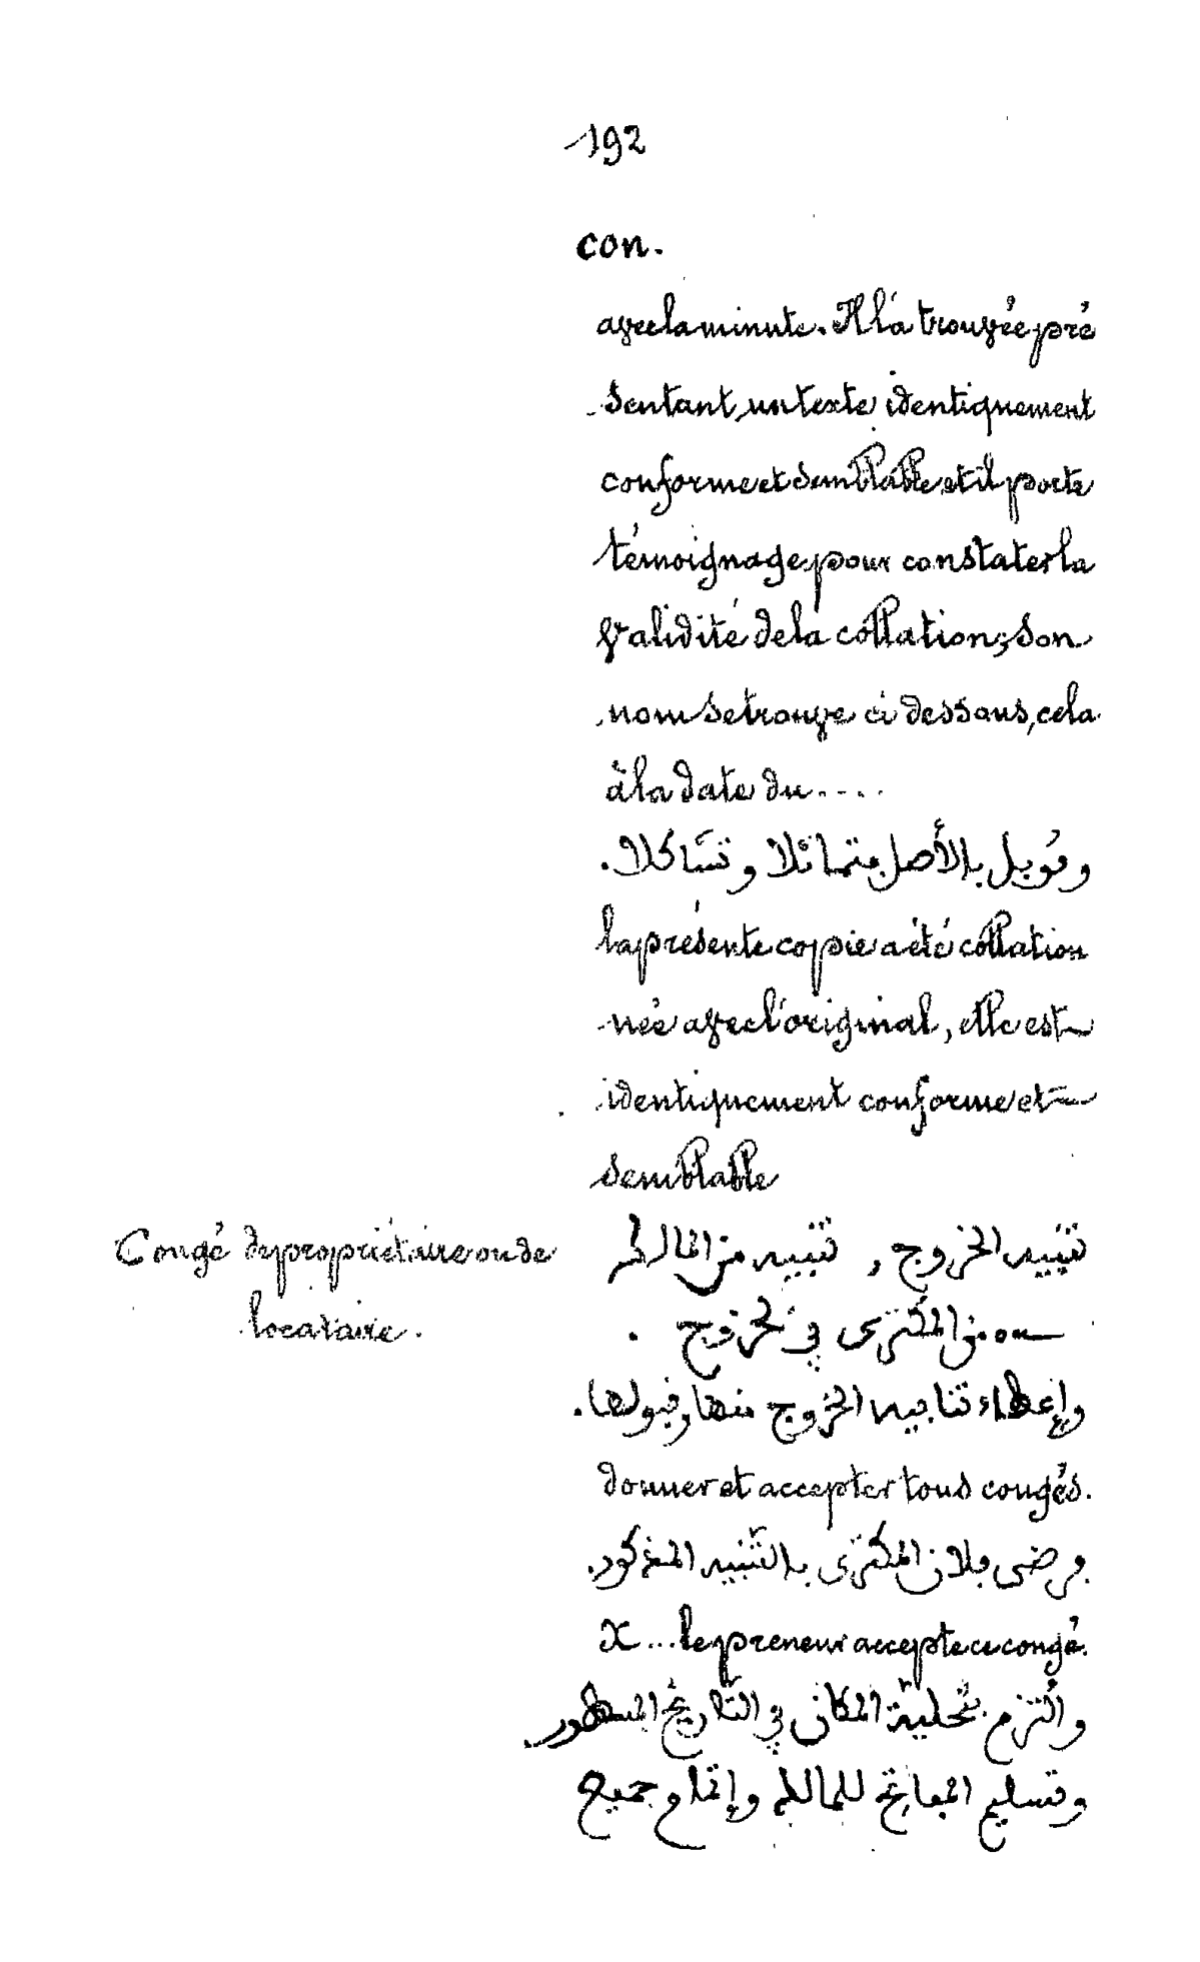 192
con.
avec la minute. Il l'a trouvée pré
sentant un texte identiquement
conforme et semblable et il porte
témoignage pour constater la
validité de la collation; son
nom se trouve ci dessous, cela
à la date du ....
وقوبل بالأصل متماثلا وتشاكلا.
la présente copie a été collation
née avec l'original, elle est
identiquement conforme et
semblable
Congé de propriétaire ou de
locataire.
تنبيه الخروج , تنبيه من المالك
من المكترى في الخروج .
وإعطاء تنابيه الخروج منها وقبولها.
donner et accepter tous congés.
ورضى فلان المكترى بالتنبيه المذكور.
X ... le preneur accepte ce congé.
والتزم بتخلية المكان في التاريخ المسطور
وتسليم المفاتح للمالك وإتمام جميع